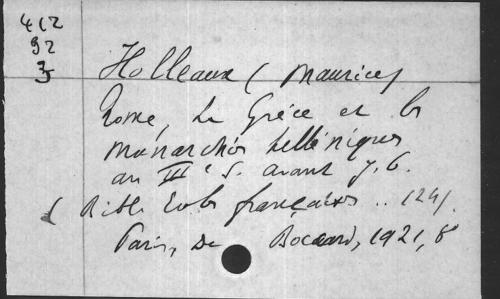 412
92
3
Holleaux (Maurice)
Rome, la Grèce et les
monarchies helléniques
au IIIe S. avant J.C.
(Bibl. Ecoles françaises .. 124).
Paris, de Boccard, 1921, 8°